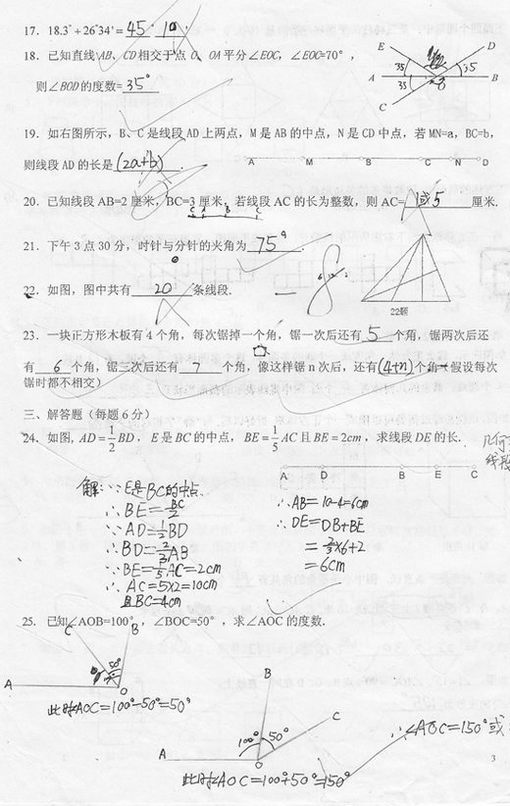 17. 18.3°+26°34′= 45° 10′
18. 已知直线 AB、CD 相交于点 O、OA 平分∠EOC, ∠EOC=70°,
则∠BOD的度数= 35°
E D
35 35
A 35 O B
C
19. 如右图所示, B、C 是线段 AD 上两点, M 是 AB 的中点, N 是 CD 中点, 若 MN=a, BC=b,
则线段 AD 的长是 (2a+b) .
A M B C N D
20. 已知线段 AB=2 厘米, BC=3 厘米, 若线段 AC 的长为整数, 则 AC= 1或5 厘米.
21. 下午 3 点 30 分, 时针与分针的夹角为 75° .
22. 如图, 图中共有 20 条线段.
-8
22题
23. 一块正方形木板有 4 个角, 每次锯掉一个角, 锯一次后还有 5 个角, 锯两次后还
有 6 个角, 锯三次后还有 7 个角, 像这样锯 n 次后, 还有 (4+n) 个角(假设每次
锯时都不相交)
三、解答题(每题 6 分)
24. 如图, AD=1/2BD, E 是 BC 的中点, BE=1/5AC 且 BE=2cm, 求线段 DE 的长.
几何
线段
A D B E C
解: ∵E是BC的中点
∴BE=BC/2
∵AD=1/2BD
∴BD=2/3AB
∵BE=1/5AC=2cm
∴AC=5×2=10cm
且BC=4cm
∴AB=10-4=6cm
∴DE=DB+BE
=2/3×6+2
=6cm
25. 已知∠AOB=100°, ∠BOC=50°, 求∠AOC 的度数.
C B
50°
A O
此时∠AOC=100°-50°=50°
B
C
100° 50°
A O
此时∠AOC=100°+50°=150°
∴∠AOC=150°或
3